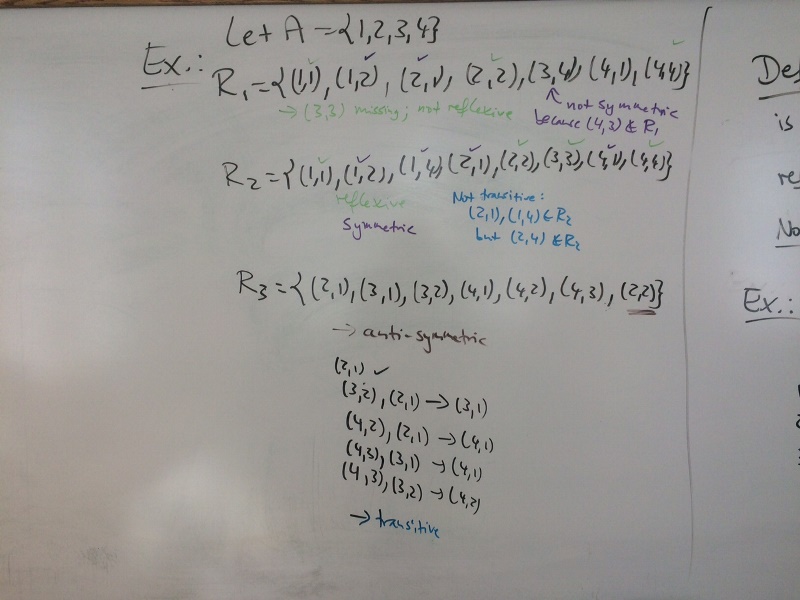 Let A = {1,2,3,4}
Ex.:
R₁ = {(1,1), (1,2), (2,1), (2,2), (3,4), (4,1), (4,4)}
→ (3,3) missing; not reflexive
↖ not symmetric
because (4,3) ∉ R₁
R₂ = {(1,1), (1,2), (1,4), (2,1), (2,2), (3,3), (4,1), (4,4)}
reflexive
symmetric
Not transitive:
(2,1), (1,4) ∈ R₂
but (2,4) ∉ R₂
R₃ = {(2,1), (3,1), (3,2), (4,1), (4,2), (4,3), (2,2)}
→ anti-symmetric
(2,1) ✓
(3,2), (2,1) → (3,1)
(4,2), (2,1) → (4,1)
(4,3), (3,1) → (4,1)
(4,3), (3,2) → (4,2)
→ transitive
is
Ex.: